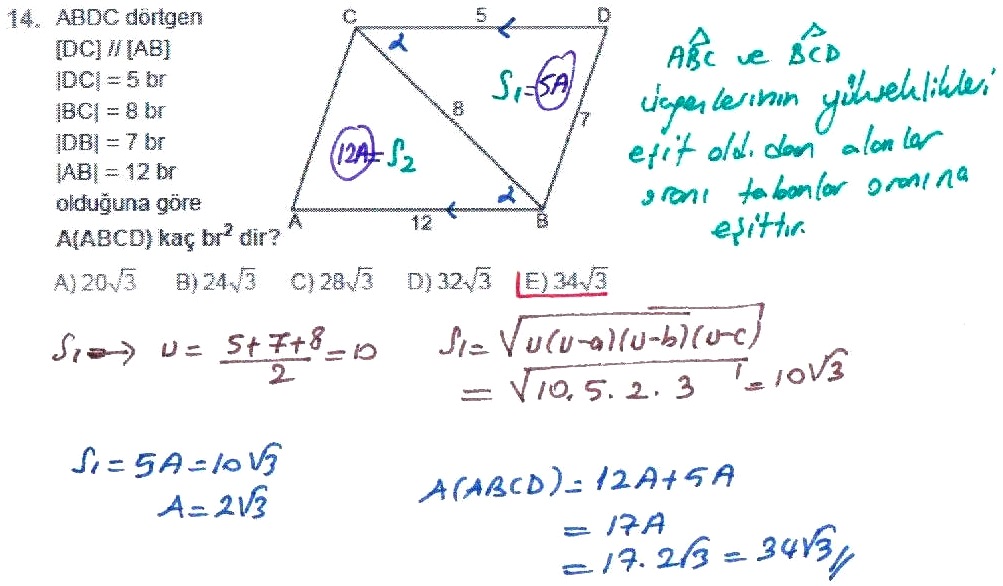 14. ABDC dörtgen
[DC] // [AB]
|DC| = 5 br
|BC| = 8 br
|DB| = 7 br
|AB| = 12 br
olduğuna göre
A(ABCD) kaç br² dir?
C 5 D
α
S₁=5A
8
7
12A=S₂
α
A 12 B
ABC ve BCD
üçgenlerinin yükseklikleri
eşit old. dan alanlar
oranı tabanlar oranına
eşittir.
A) 20√3 B) 24√3 C) 28√3 D) 32√3 E) 34√3
S₁ → u = (5+7+8)/2 = 10
S₁ = √(u(u-a)(u-b)(u-c))
= √(10.5.2.3) = 10√3
S₁ = 5A = 10√3
A = 2√3
A(ABCD) = 12A+5A
= 17A
= 17.2√3 = 34√3//